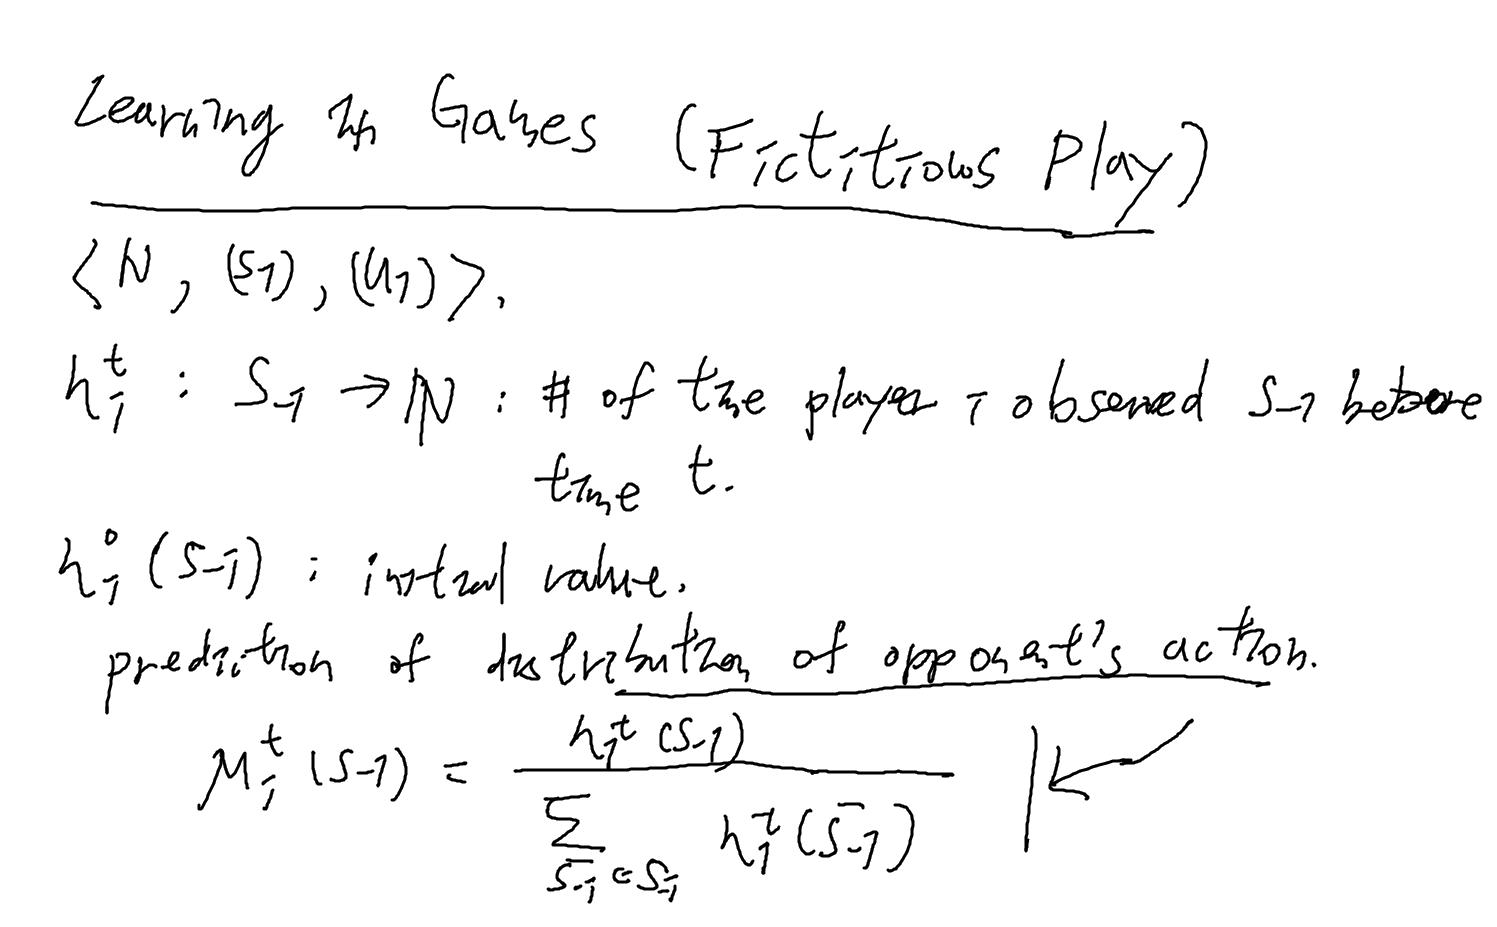 Learning in Games (Fictitious Play)
⟨N, (Si), (ui)⟩.
hᵢᵗ : S₋ᵢ → ℕ : # of time player i observed S₋ᵢ before
time t.
hᵢ⁰ (S₋ᵢ) : initial value.
prediction of distribution of opponent's action.
μᵢᵗ (S₋ᵢ) = hᵢᵗ (S₋ᵢ) / ∑_{s̄₋ᵢ ∈ S₋ᵢ} hᵢᵗ (s̄₋ᵢ)